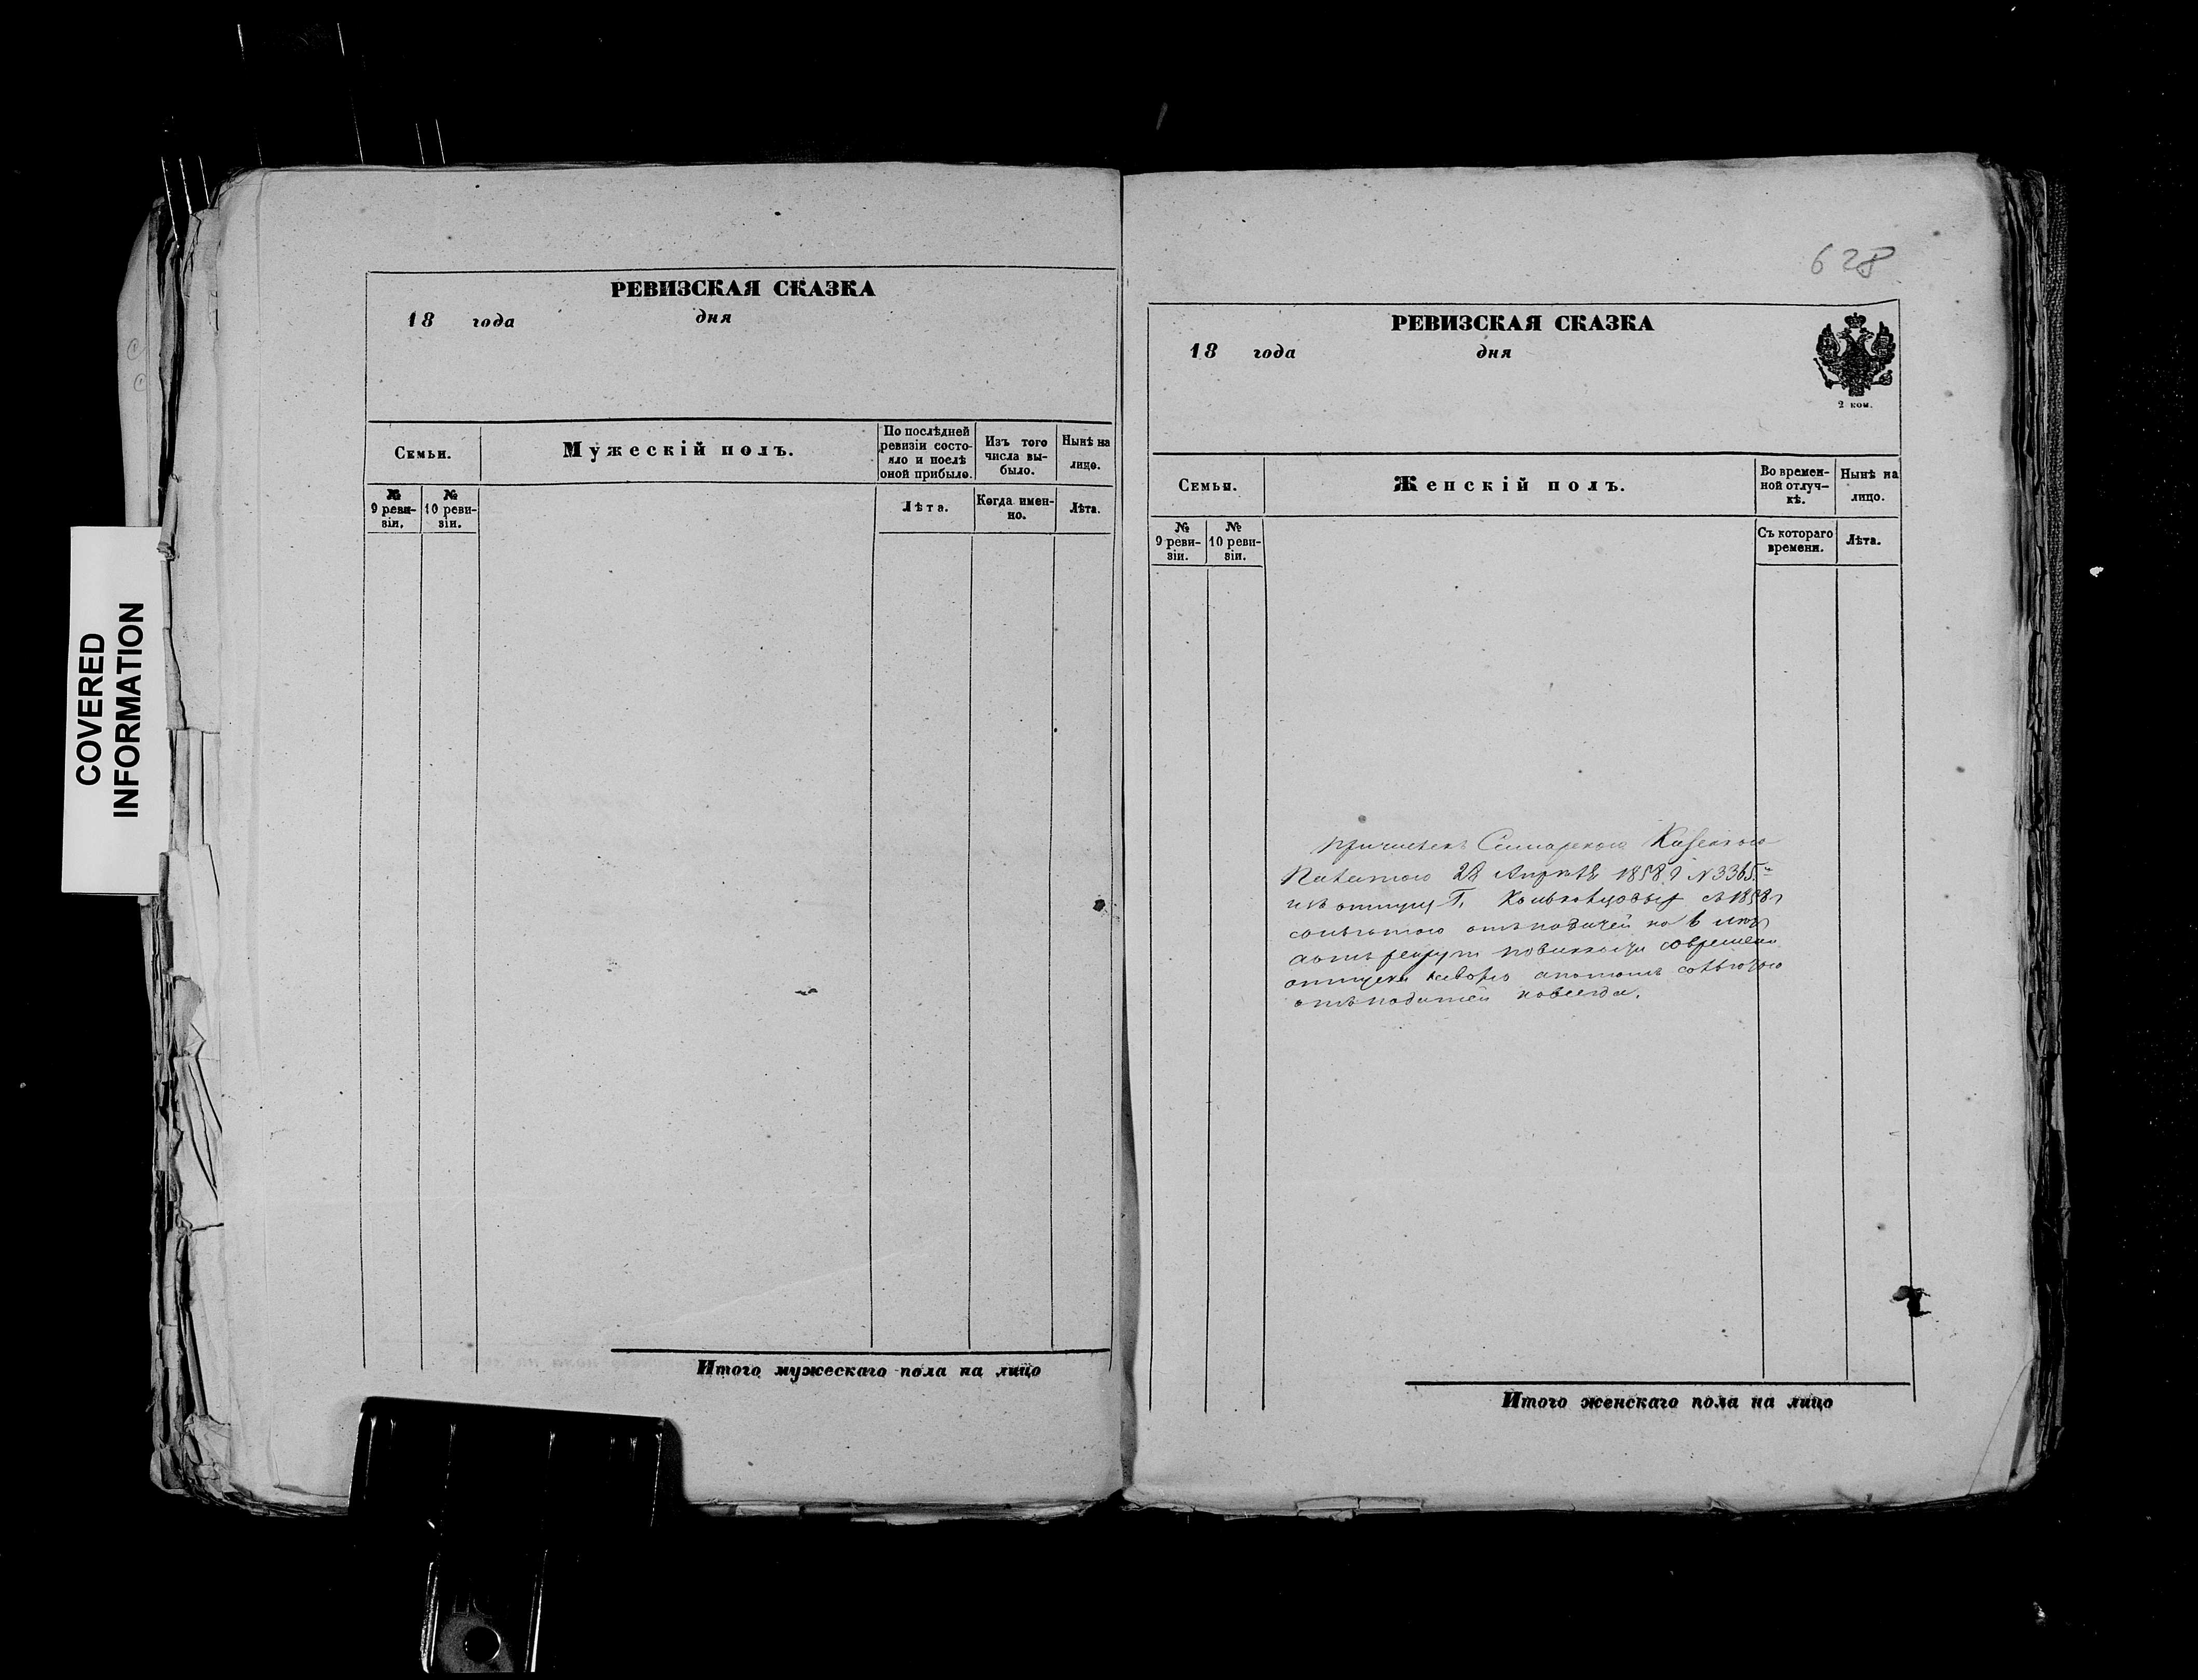 COVERED
INFORMATION
РЕВИЗСКАЯ СКАЗКА
18 года дня
Семьи.
Мужескій полъ.
По послѣдней
ревизіи состо-
яло и послѣ
оной прибыло.
Изъ того
числа вы-
было.
Нынѣ на
лицо.
№
9 реви-
зіи.
№
10 реви-
зіи.
Лѣта.
Когда имен-
но.
Лѣта.
Итого мужескаго пола на лицо
628
РЕВИЗСКАЯ СКАЗКА
18 года дня
2 коп.
Семьи.
Женскій полъ.
Во времен-
ной отлуч-
кѣ.
Нынѣ на
лицо.
№
9 реви-
зіи.
№
10 реви-
зіи.
Съ котораго
времени.
Лѣта.
причисленъ Самарскою Казенною
Палатою 28 Апрѣля 1858 г № 3365
съ 1858 г
отъ податей на 6 лѣтъ
рекрут повинности современи
отпуска
отъ податей навсегда.
Итого женскаго пола на лицо